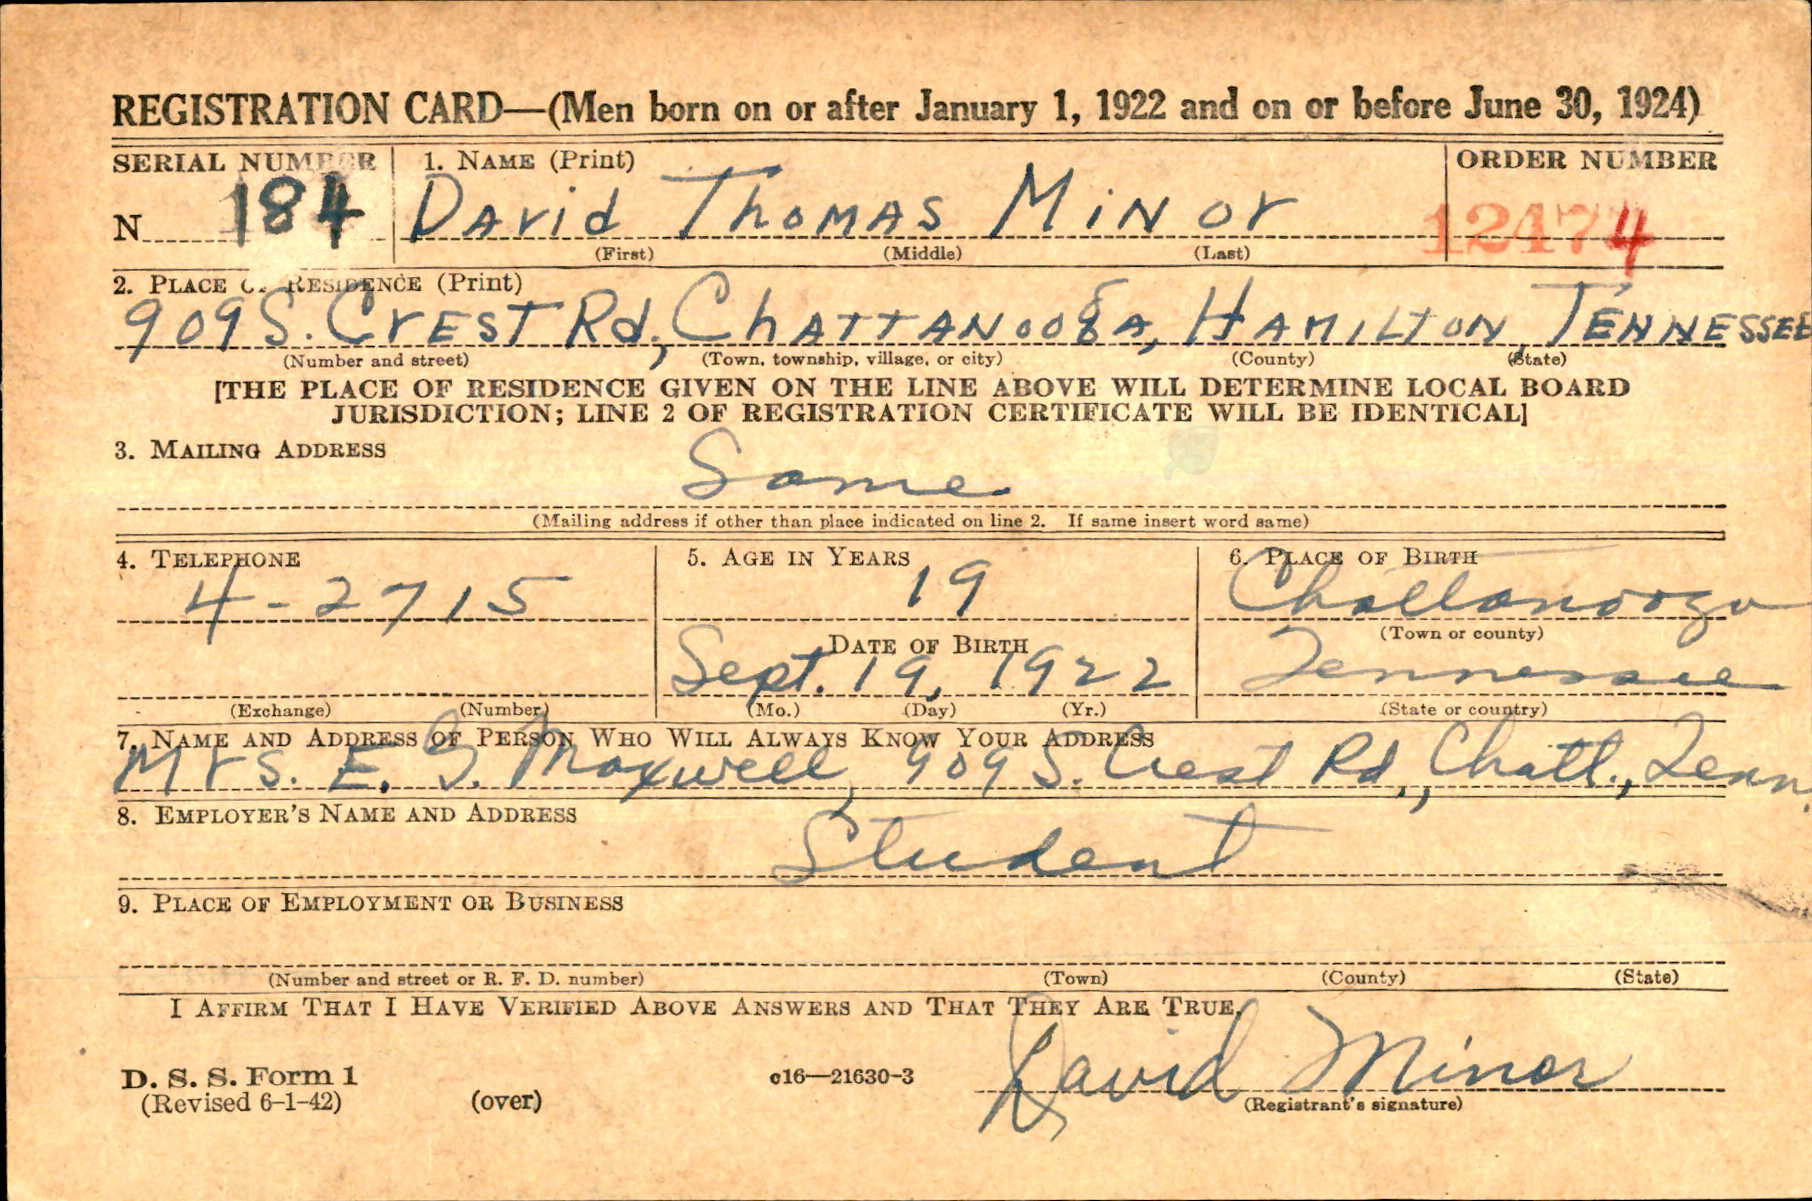 REGISTRATION CARD—(Men born on or after January 1, 1922 and on or before June 30, 1924)
SERIAL NUMBER 1. NAME (Print) ORDER NUMBER
N 184 DAvid ThOMAS MiNor 12474
(First) (Middle) (Last)
2. PLACE OF RESIDENCE (Print)
909 S. CrEST Rd, ChATTANOOgA, HAMILTON, TENNESSEE
(Number and street) (Town, township, village, or city) (County) (State)
[THE PLACE OF RESIDENCE GIVEN ON THE LINE ABOVE WILL DETERMINE LOCAL BOARD
JURISDICTION; LINE 2 OF REGISTRATION CERTIFICATE WILL BE IDENTICAL]
3. MAILING ADDRESS
Same
(Mailing address if other than place indicated on line 2. If same insert word same)
4. TELEPHONE 5. AGE IN YEARS 6. PLACE OF BIRTH
4-2715 19 Chattanooga
DATE OF BIRTH (Town or county)
Sept. 19, 1922 Tennessee
(Exchange) (Number) (Mo.) (Day) (Yr.) (State or country)
7. NAME AND ADDRESS OF PERSON WHO WILL ALWAYS KNOW YOUR ADDRESS
Mrs. E. G. Maxwell, 909 S. Crest Rd., Chatt., Tenn.
8. EMPLOYER'S NAME AND ADDRESS
Student
9. PLACE OF EMPLOYMENT OR BUSINESS
(Number and street or R. F. D. number) (Town) (County) (State)
I AFFIRM THAT I HAVE VERIFIED ABOVE ANSWERS AND THAT THEY ARE TRUE.
D. S. S. Form 1
(Revised 6-1-42) (over) c16—21630-3 David Minor
(Registrant's signature)